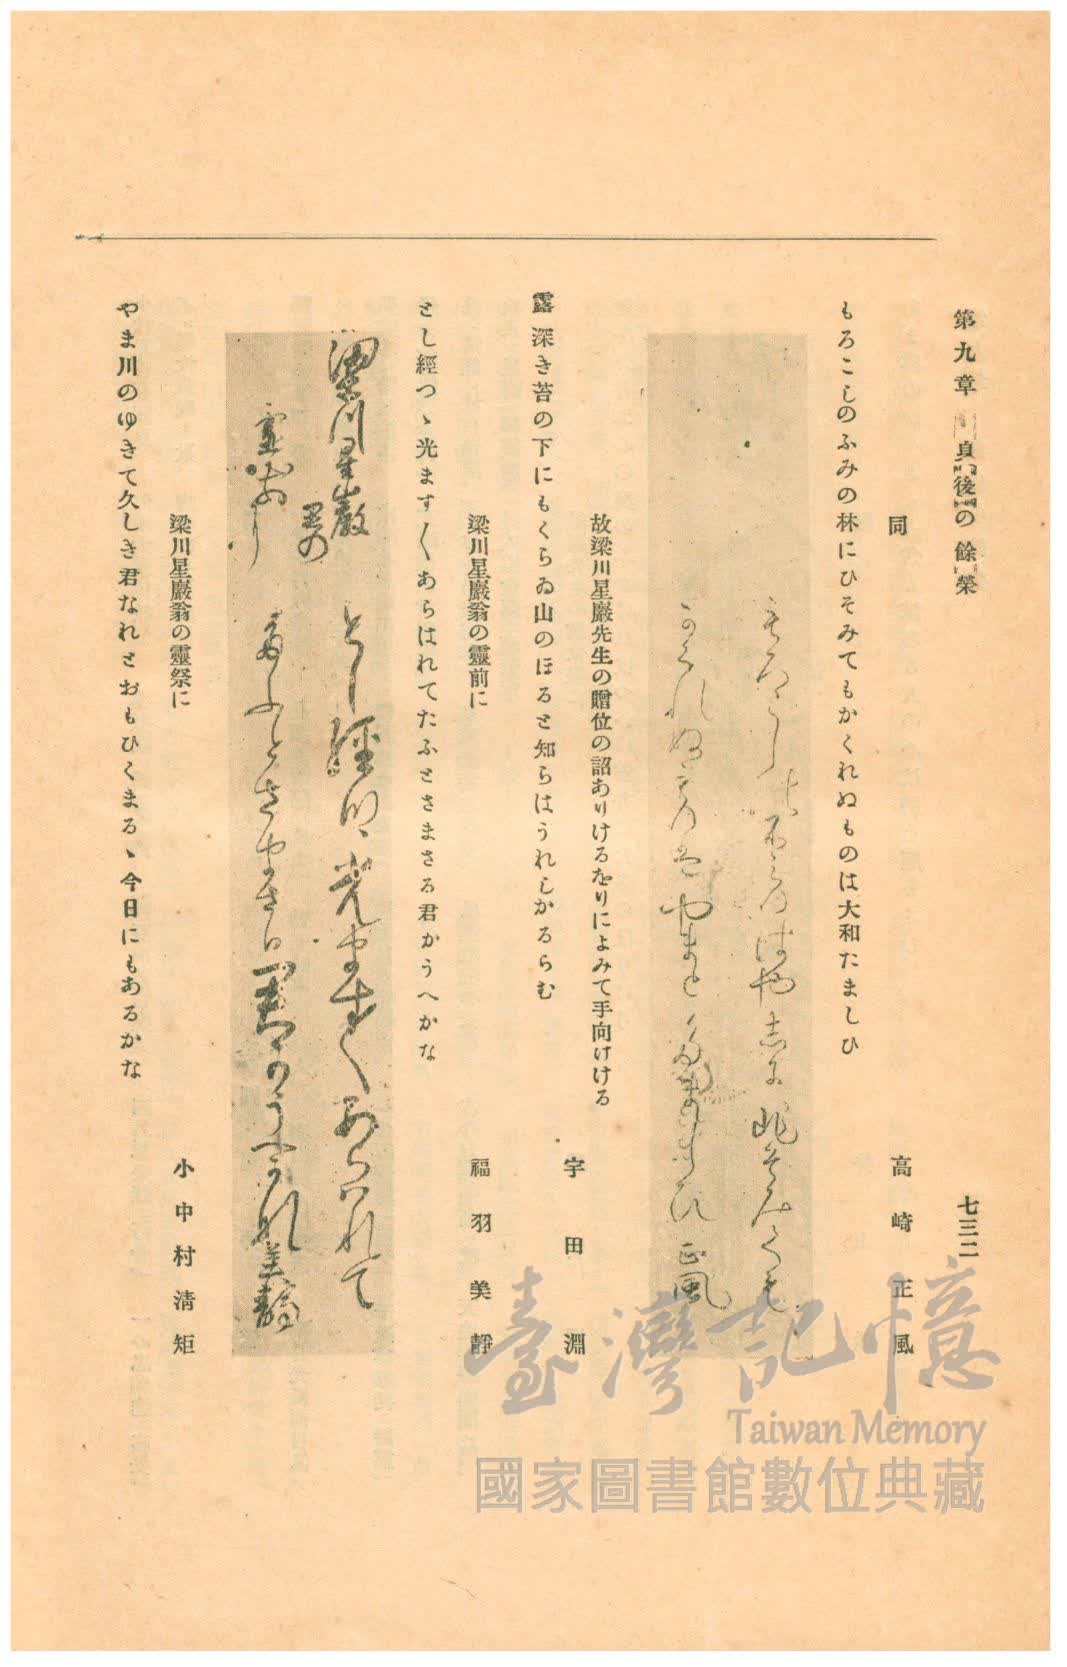 第九章　身後の餘榮
七三二
同
高崎正風
もろこしのふみの林にひそみてもかくれぬものは大和たましひ
正風
故梁川星巖先生の贈位の詔ありけるをりによみて手向けける
宇田淵
露深き苔の下にもくらゐ山のほると知らはうれしかるらむ
梁川星巖翁の靈前に
福羽美靜
とし經つゝ光ます〱あらはれてたふとさまさる君かうへかな
梁川星巖
君の
靈前に
とし經つゝ光ます〱あらはれて
たふとさまさる君かうへかな美靜
梁川星巖翁の靈祭に
小中村清矩
やま川のゆきて久しき君なれとおもひくまるゝ今日にもあるかな
臺灣記憶
Taiwan Memory
國家圖書館數位典藏